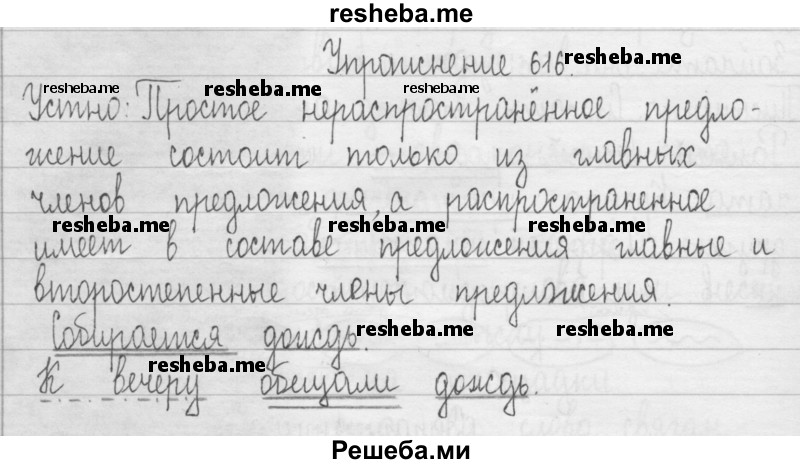 resheba.me
Упражнение 616. resheba.me
resheba.me resheba.me resheba.me
Устно: Простое нераспространённое предло-
жение состоит только из главных
членов предложения, а распространенное
resheba.me resheba.me
имеет в составе предложения главные и
второстепенные члены предложения.
Собирается дождь. resheba.me resheba.me
К вечеру обещали дождь. resheba.me
Решеба.ми